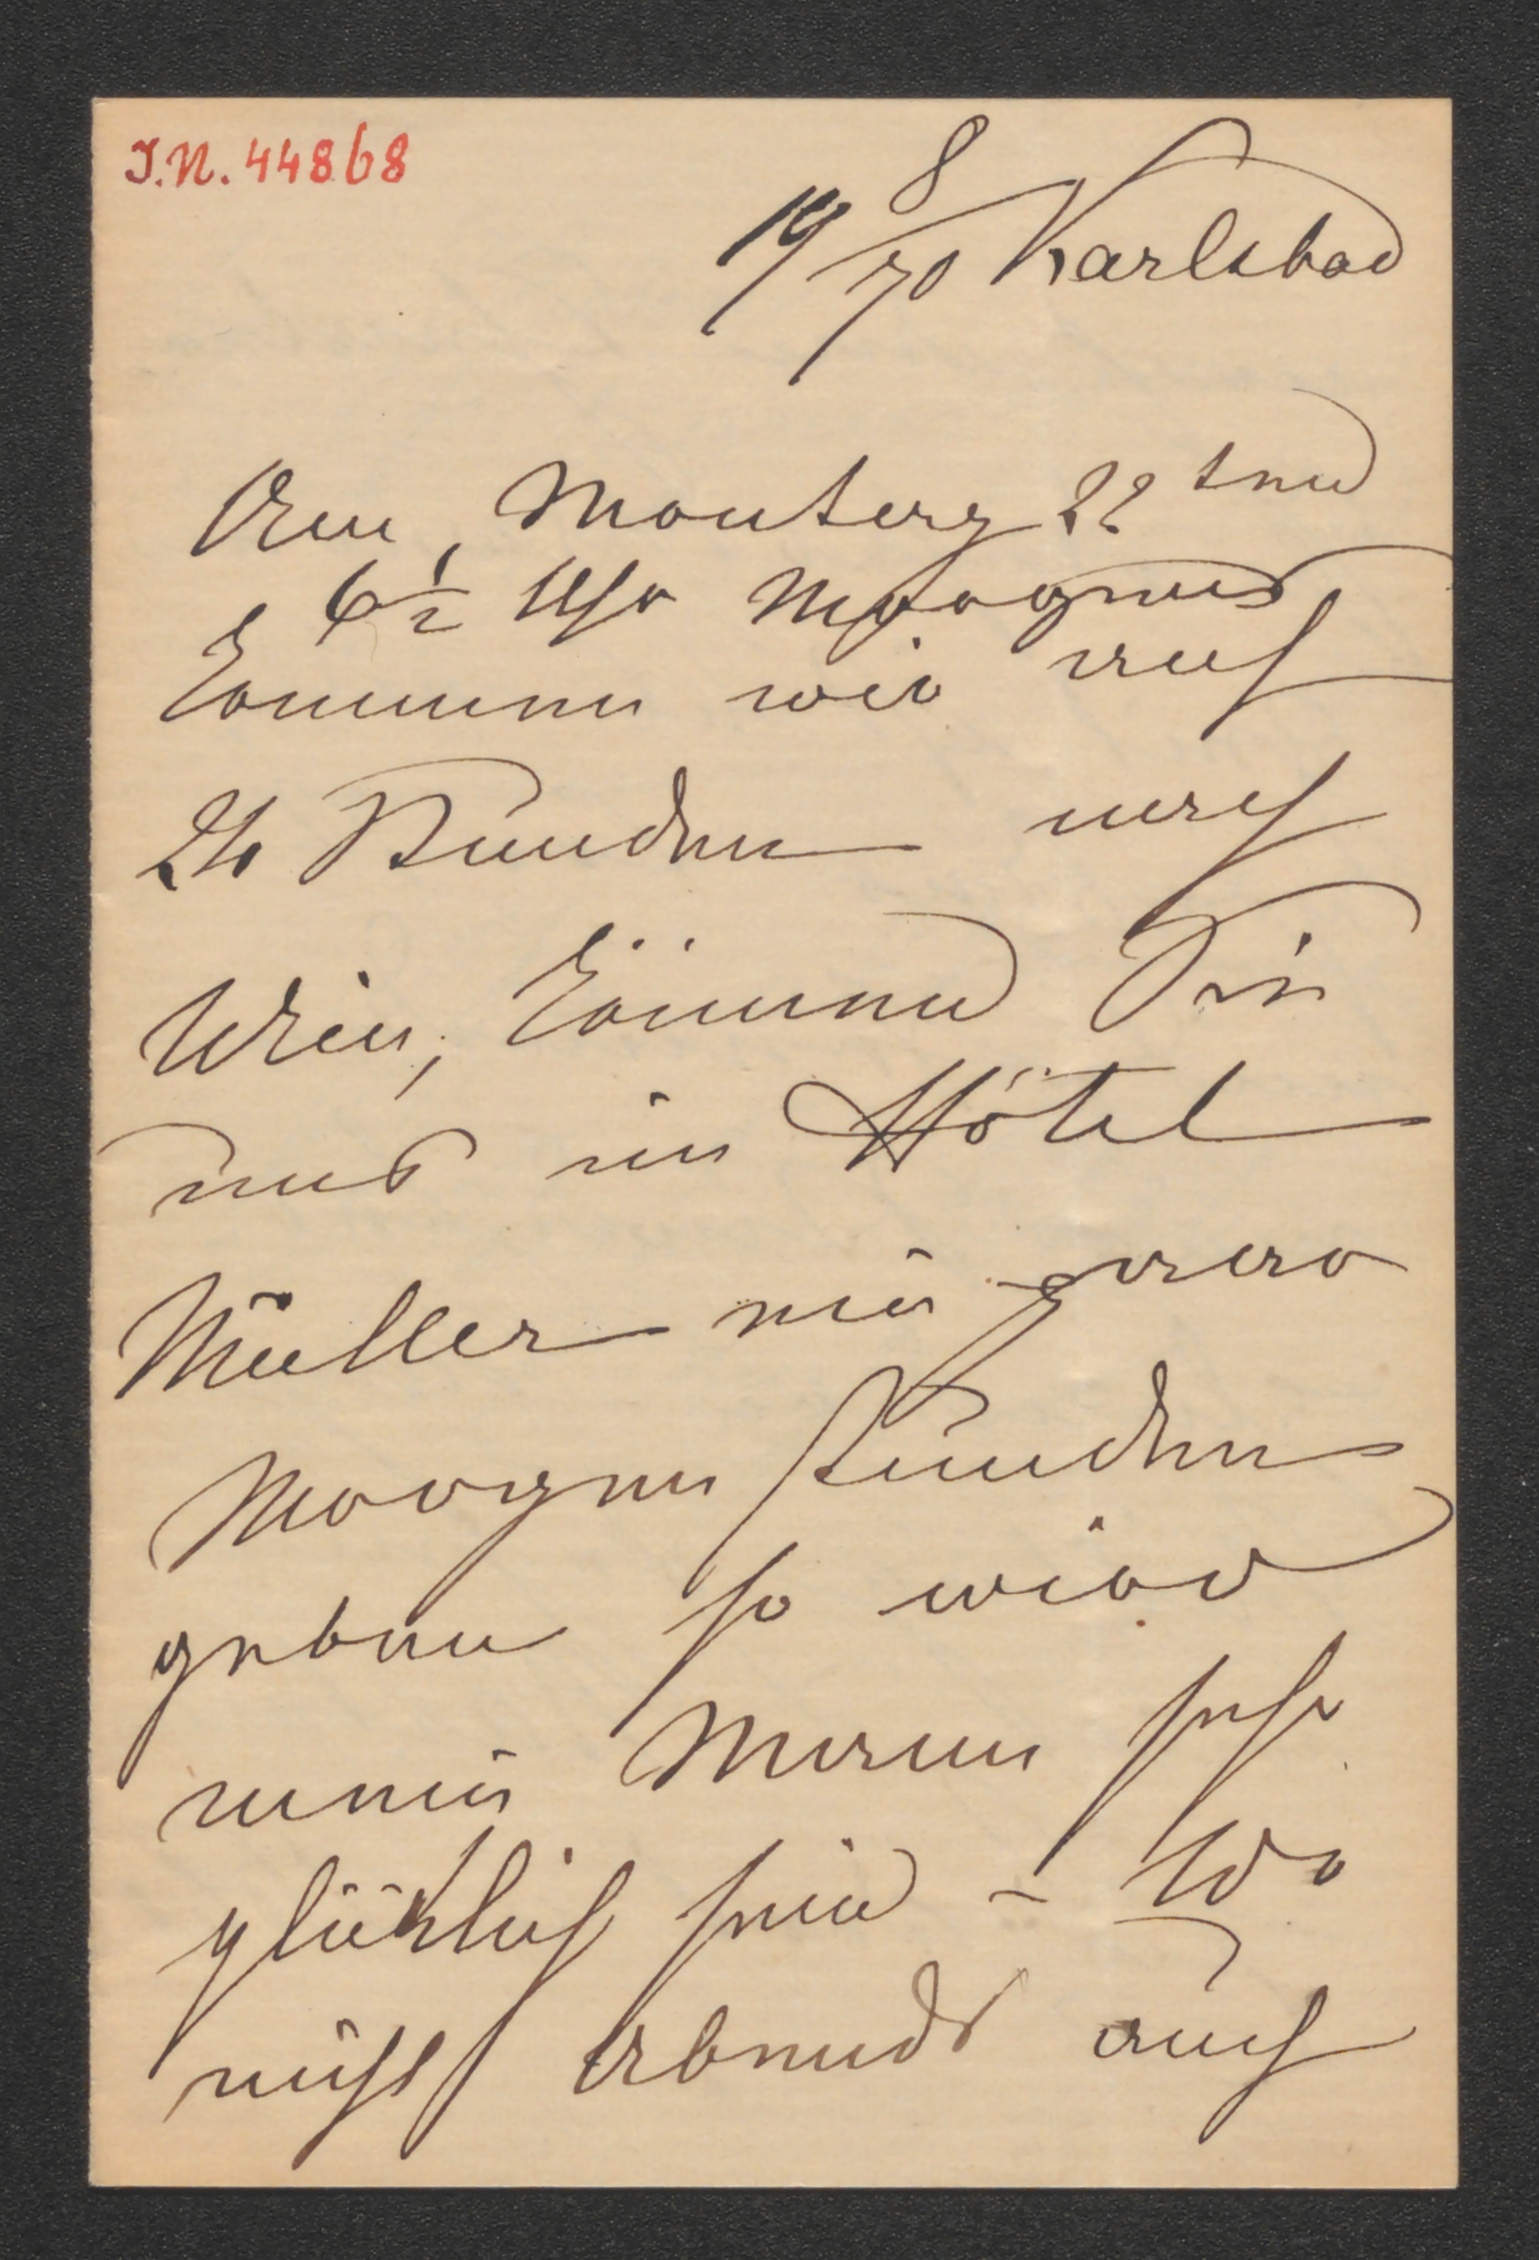 I.N. 44868
19/8 70 Karlsbad
Am Montag 22ten
6½ Uhr Morgens
kommen wir auf
24 Stunden nach
Wien, können Sie
uns im Hôtel
Müller ein paar
Morgen Stunden
geben so wird
mein Mann sehr
glücklich sein – Wo
nicht Abends auch